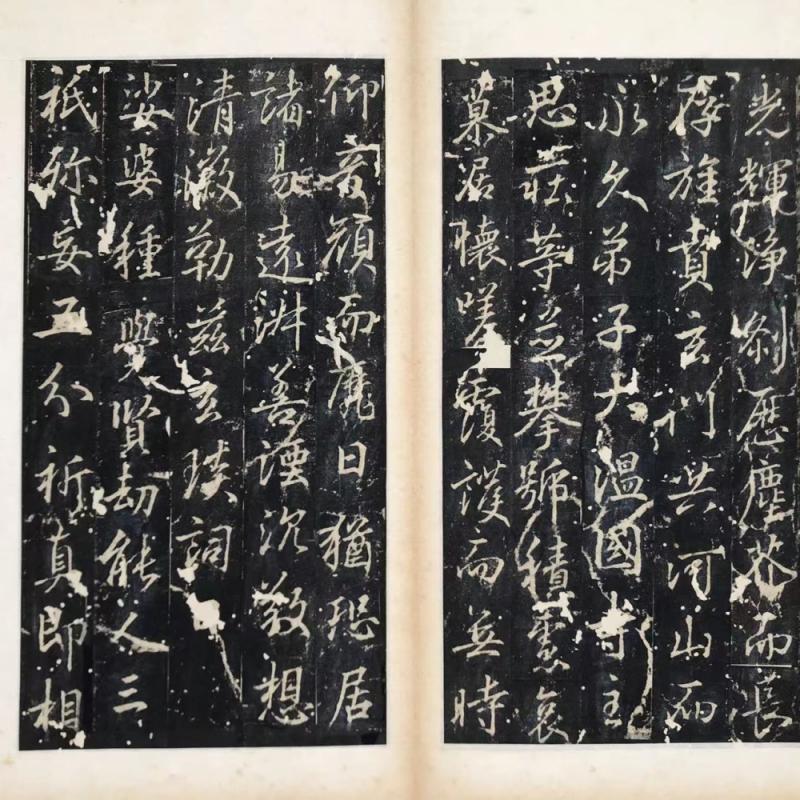 光輝淨刹歷塵芥而長
存旌賁玄門共河山而
永久弟子大溫國寺主
思莊等並攀號積慮哀
慕居懷嗟覆護而無時
仰音顏而靡日猶恐居
諸易遠善湮沉敬想
清徽勒茲玄琰詞
娑婆種覺賢劫能人三
祇弥妄五分祈真即相